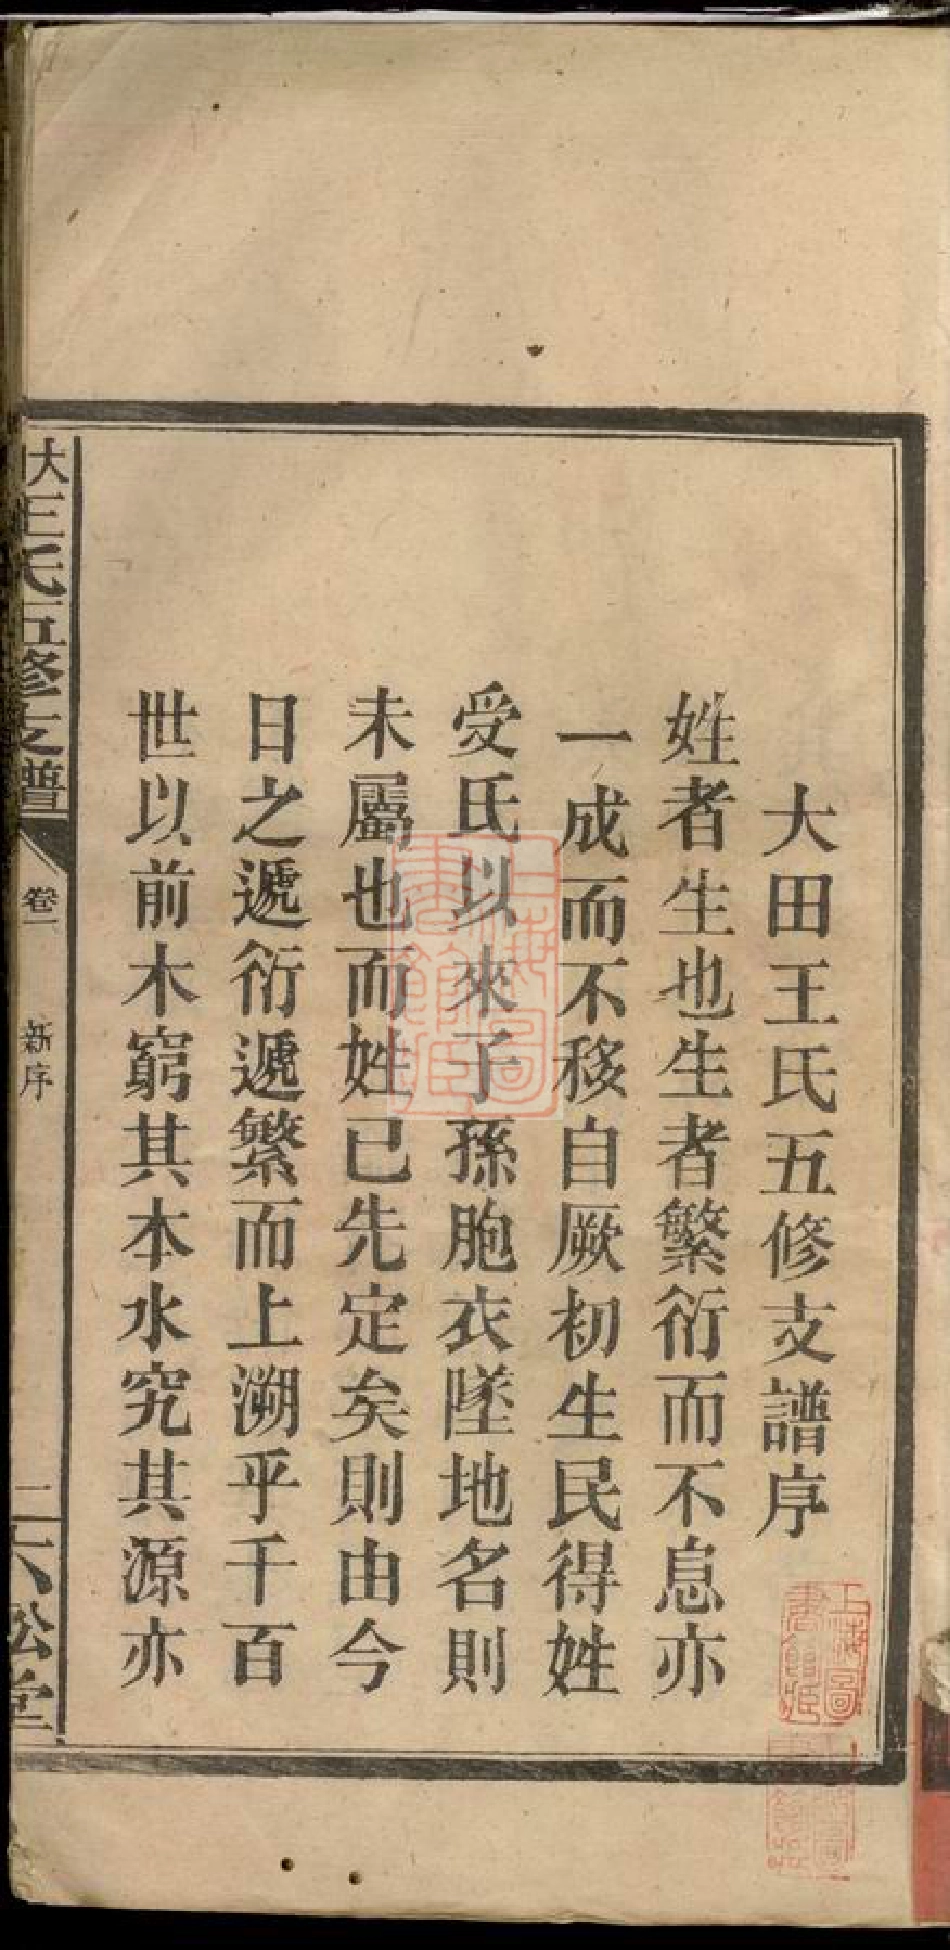 大田王氏五修支譜序
姓者生也生者繁衍而不息亦
一成而不移自厥初生民得姓
受氏以來子孫胞衣墜地名則
未屬也而姓已先定矣則由今
日之遞衍遞繁而上溯乎千百
世以前木窮其本水究其源亦
王氏五修支譜
卷一
新序
松堂
上海圖書館藏
上海圖書館藏